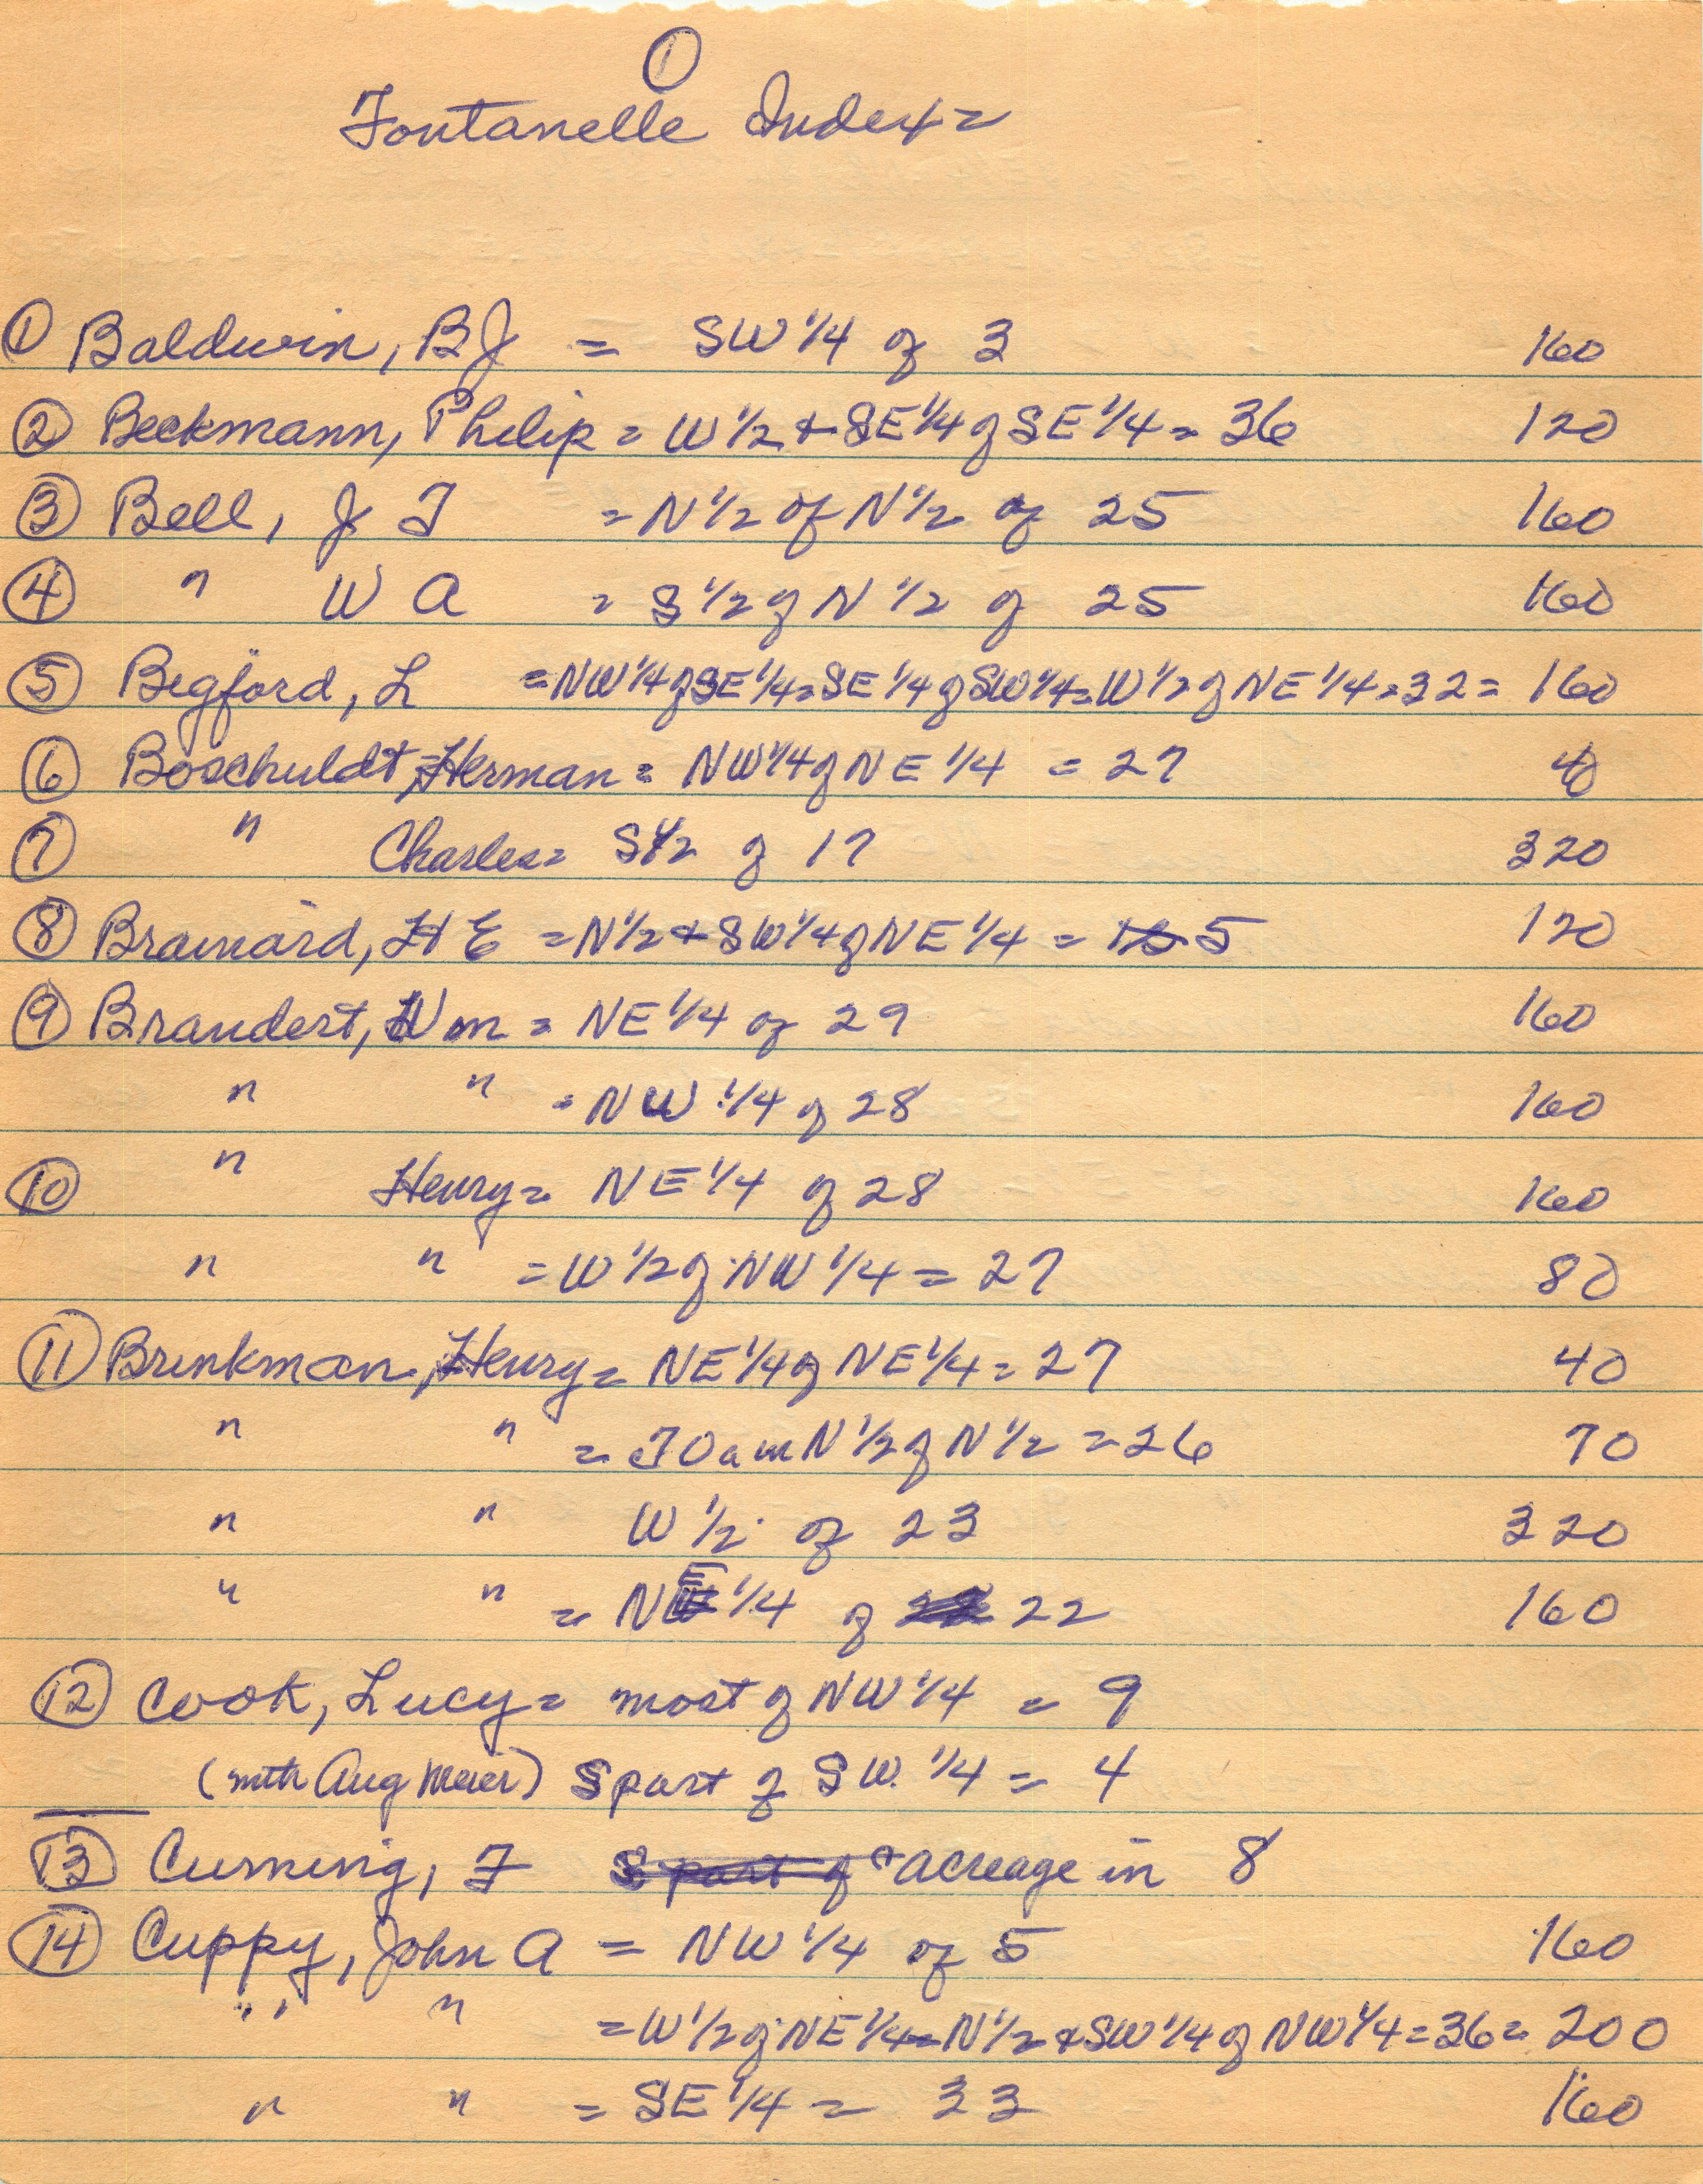 ①
Fontanelle Index =
① Baldwin, BJ = SW 1/4 of 3 160
② Beckmann, Philip = W 1/2 + SE 1/4 of SE 1/4 = 36 120
③ Bell, J F = N 1/2 of N 1/2 of 25 160
④ " W A = S 1/2 of N 1/2 of 25 160
⑤ Begford, L = NW 1/4 of SE 1/4 = SE 1/4 of SW 1/4 = W 1/2 of NE 1/4 = 32 = 160
⑥ Boschuldt, Herman = NW 1/4 of NE 1/4 = 27 40
⑦ " Charles = S 1/2 of 17 320
⑧ Brainard, H E = N 1/2 + SW 1/4 of NE 1/4 = 5 120
⑨ Brandert, Wm = NE 1/4 of 29 160
" " = NW 1/4 of 28 160
⑩ " Henry = NE 1/4 of 28 160
" " = W 1/2 of NW 1/4 = 27 80
⑪ Brinkman, Henry = NE 1/4 of NE 1/4 = 27 40
" " = 70 a in N 1/2 of N 1/2 = 26 70
" " W 1/2 of 23 320
" " = NE 1/4 of 22 160
⑫ Cook, Lucy = most of NW 1/4 = 9
(with Aug Meier) S part of SW 1/4 = 4
⑬ Cuming, F S part of + acreage in 8
⑭ Cuppy, John A = NW 1/4 of 5 160
" " = W 1/2 of NE 1/4 = N 1/2 + SW 1/4 of NW 1/4 = 36 = 200
" " = SE 1/4 = 33 160